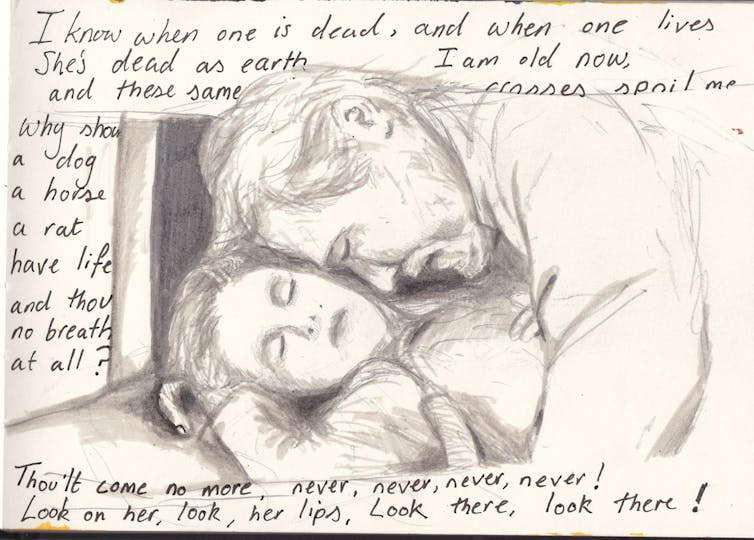 I know when one is dead, and when one lives
She's dead as earth I am old now,
and these same crosses spoil me
Why shou
a dog
a horse
a rat
have life
and thou
no breath
at all?
Thou'lt come no more, never, never, never, never!
Look on her, look, her lips, Look there, look there!